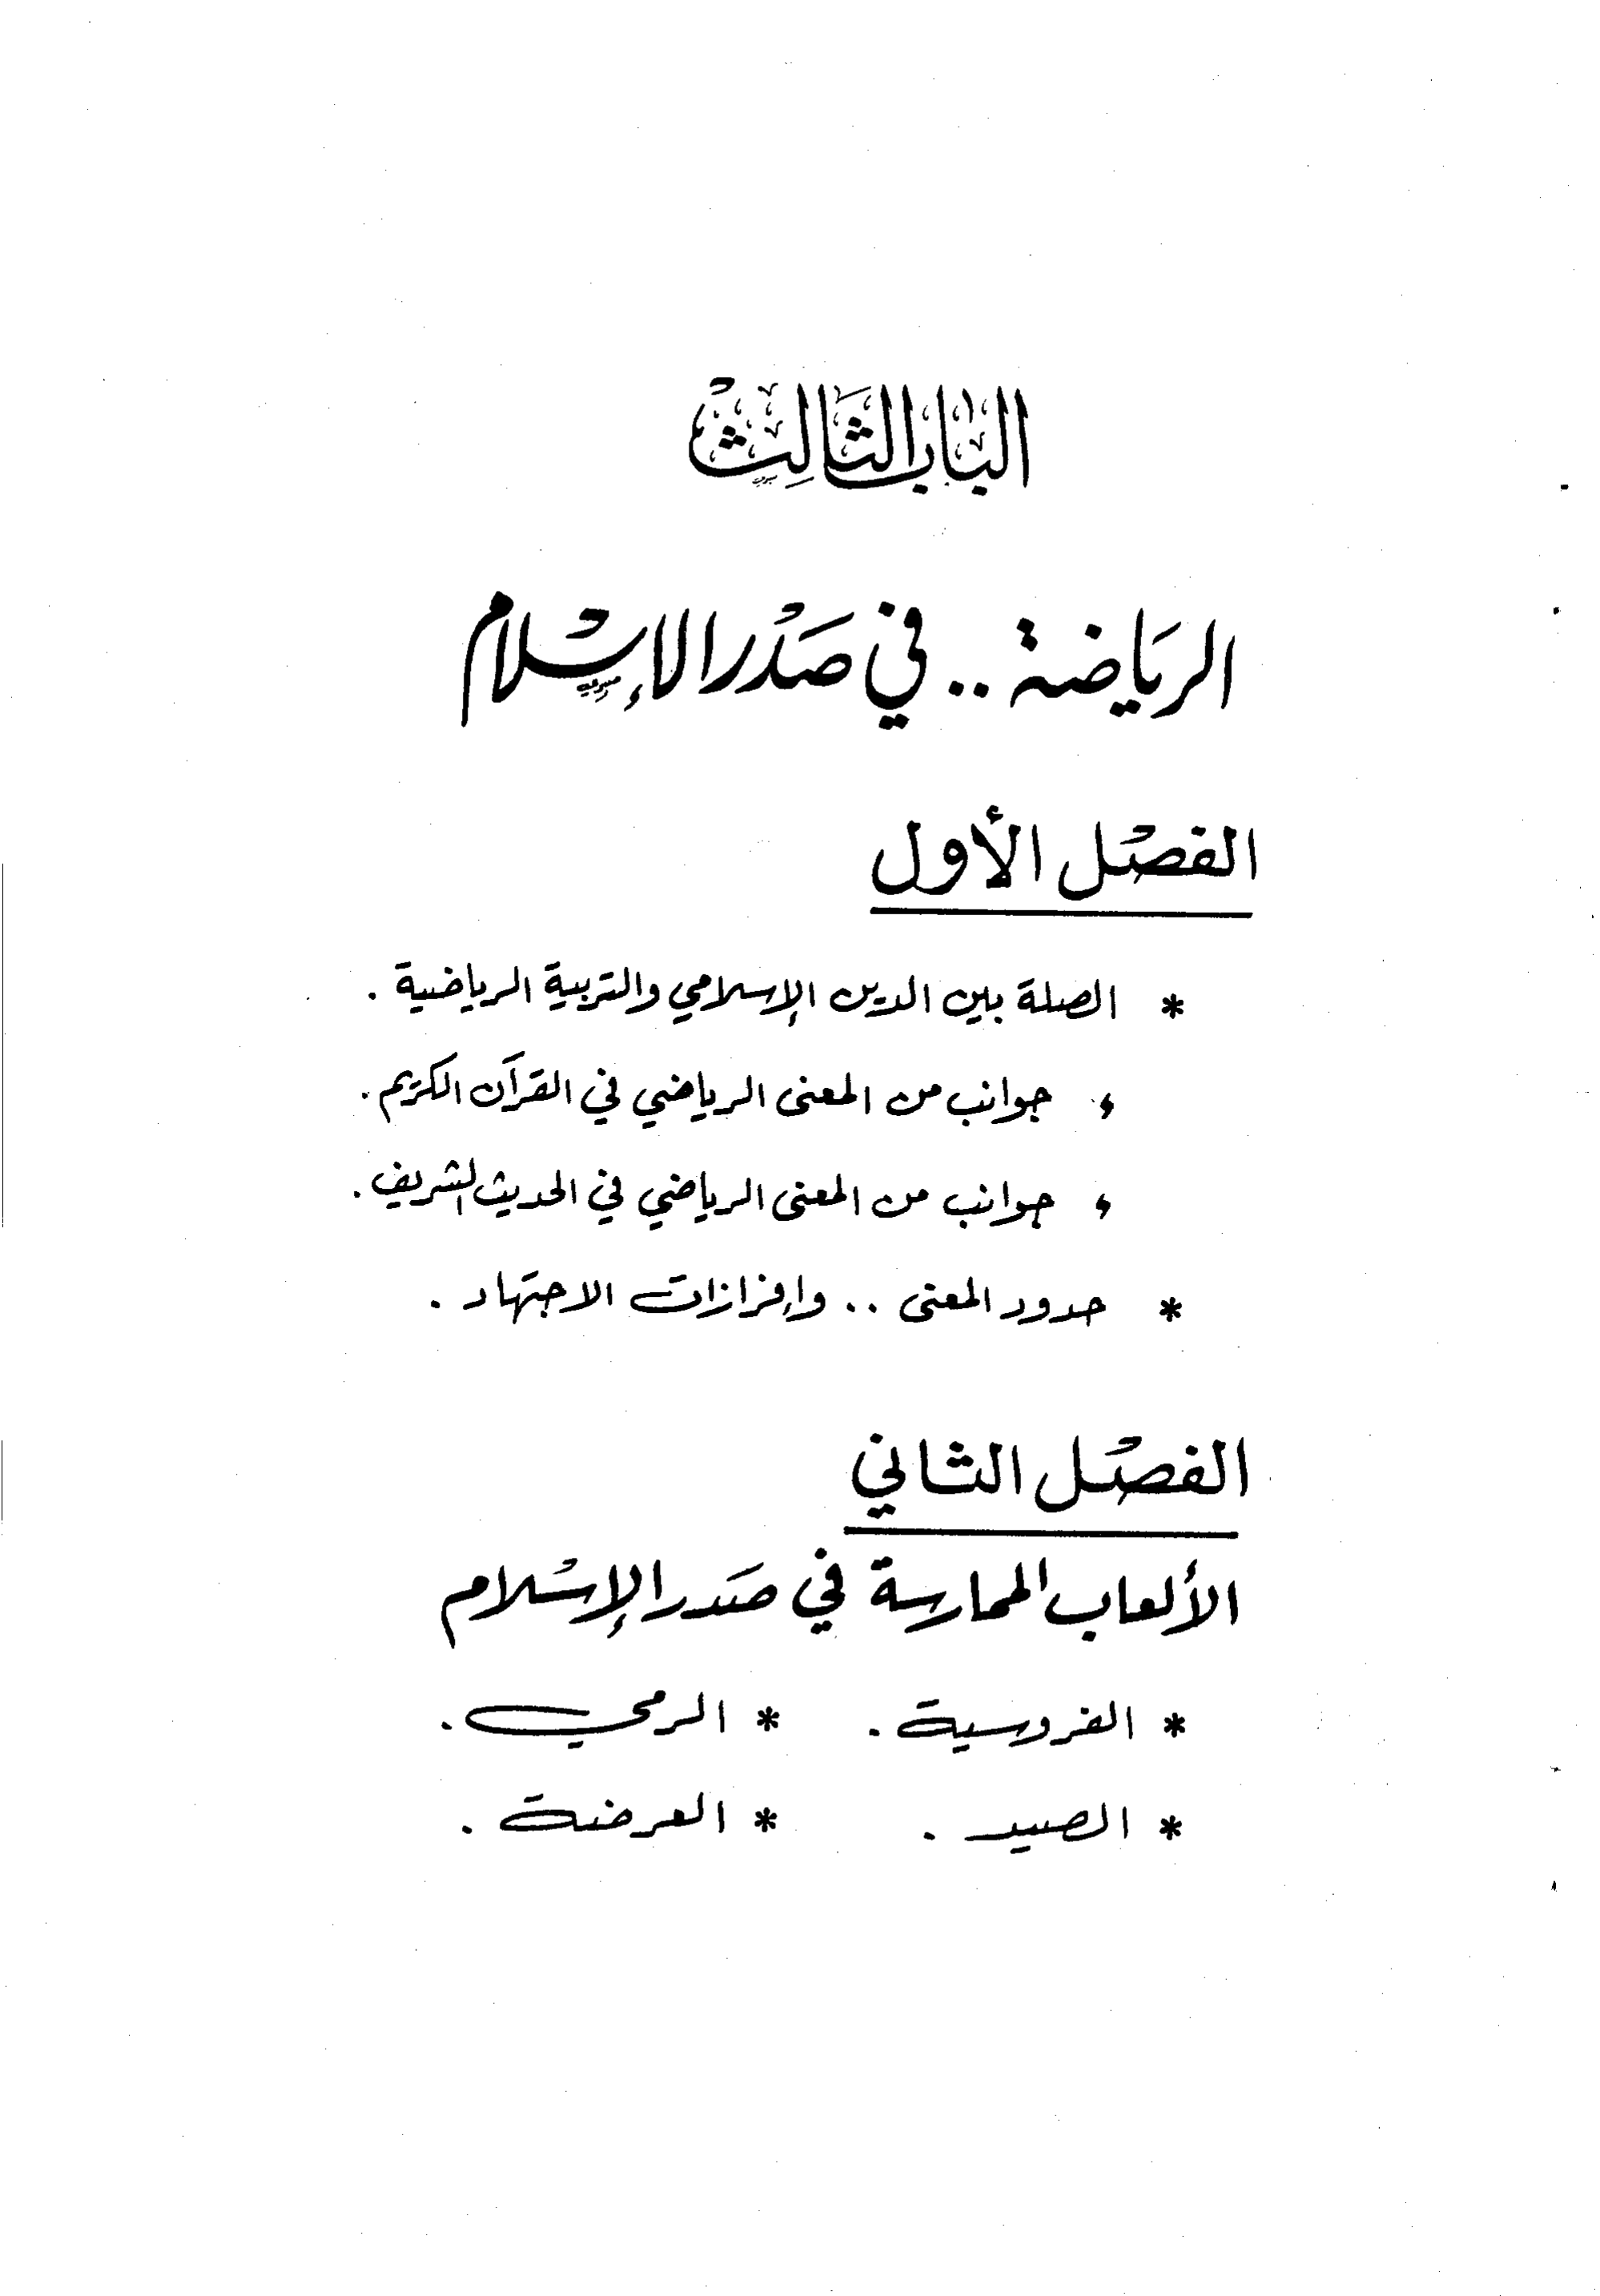 الباب الثالث
الرياضة .. في صدر الإسلام
الفصل الأول
* الصلة بين الدين الإسلامي والتربية الرياضية .
، جوانب من المعنى الرياضي في القرآن الكريم .
، جوانب من المعنى الرياضي في الحديث الشريف .
* حدود المعنى .. وإفرازات الاجتهاد .
الفصل الثاني
الألعاب الممارسة في صدر الإسلام
* الفروسية . * الرمي .
* الصيد . * العرضة .